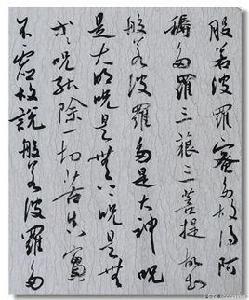 般若波羅蜜多故得阿
耨多羅三藐三菩提故知
般若波羅多是大神呪
是大明呪是無上呪是無
等等呪能除一切苦真實
不虛故說般若波羅多